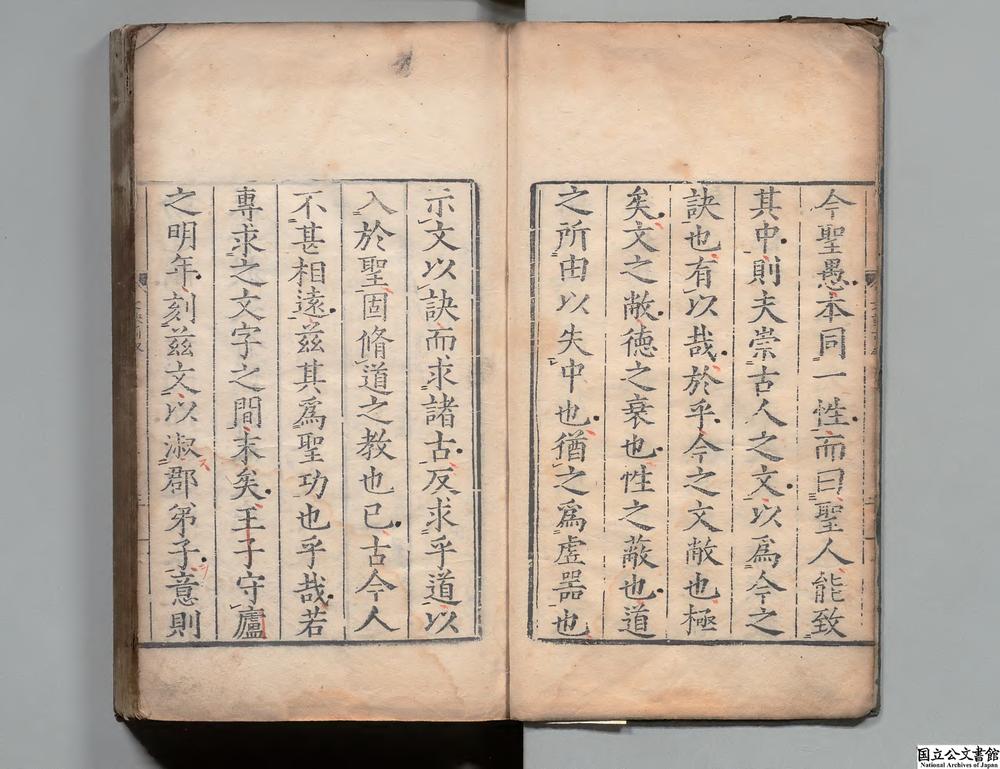 今聖愚本同一性而曰聖人能致
其中則夫崇古人之文以為今之
訣也有以哉於乎今之文敝也極
矣文之敝徳之衰也性之蔽也道
之所由以失中也猶之爲虚器也
示文以訣而求諸古反求乎道以
入於聖固脩道之教也已古今人
不甚相遠茲其爲聖功也乎哉若
專求之文字之間末矣王子守廬
之明年刻茲文以淑郡弟子意則
国立公文書館
National Archives of Japan